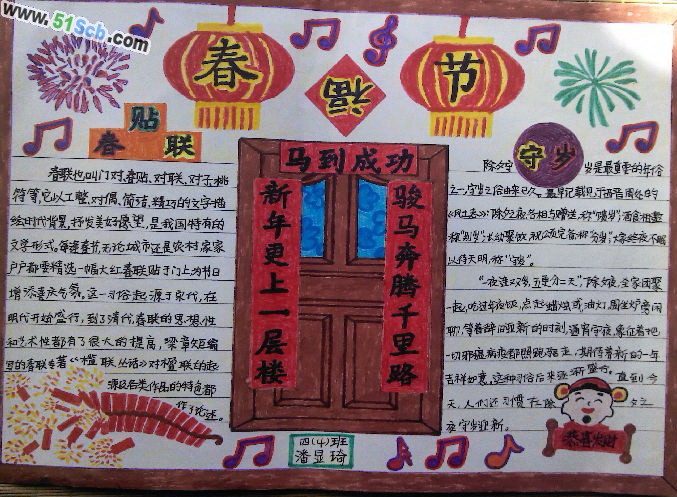 www.51Scb.com
春
节
福
贴
春
联
春联也叫门对、春贴、对联、对子、桃
符等,它以工整、对偶、简洁、精巧的文字描
绘时代背景,抒发美好愿望,是我国特有的
文学形式。每逢春节,无论城市还是农村,家家
户户都要精选一幅大红春联贴于门上,为节日
增添喜庆气氛。这一习俗起源于宋代,在
明代开始盛行,到了清代,春联的思想性
和艺术性都有了很大的提高,梁章矩编
写的春联专著《楹联丛话》对楹联的起
源及各类作品的特色都
作了论述。
马到成功
骏马奔腾千里路
新年更上一层楼
守岁
除夕守岁是最重要的年俗
之一,守岁之俗由来已久。最早记载见于西晋周处的
《风土志》:除夕之夜,各相与赠送,称“馈岁”;酒食相邀,
称“别岁”;长幼聚饮,祝颂完备,称“分岁”;大家终夜不眠,
以待天明,称“守岁”。
“一夜连双岁,五更分二天”,除夕夜,全家团聚
一起,吃过年夜饭,点起蜡烛或油灯,围坐炉旁闲
聊,等着辞旧迎新的时刻,通宵守夜,象征着把
一切邪瘟病疫都照跑驱走,期待着新的一年
吉祥如意。这种习俗后来逐渐盛行,直到今
天,人们还习惯在除夕之
夜守岁迎新。
恭喜发财
四(4)班
潘显琦